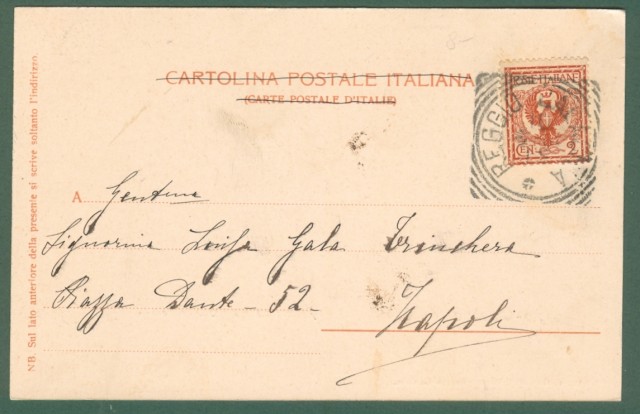 CARTOLINA POSTALE ITALIANA
(CARTE POSTALE D'ITALIE)
POSTE ITALIANE
CEN 2
REGGIO
A Gentma
Signorina Luisa Gala Trinchera
Piazza Dante - 52 -
Napoli
NB. Sul lato anteriore della presente si scrive soltanto l'indirizzo